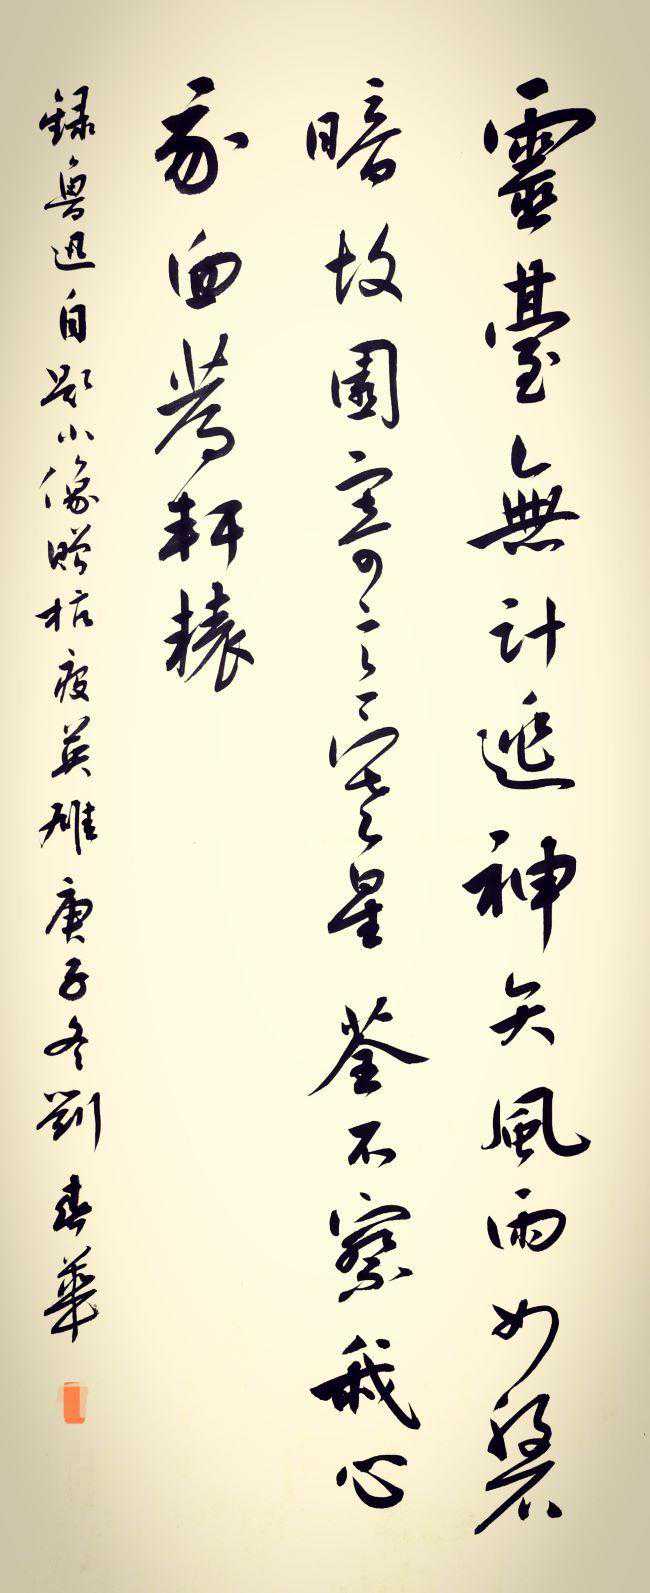 靈臺無計逃神矢風雨如磐
暗故園寄意寒星荃不察我以
我血薦軒轅
録魯迅自題小像贈抗疫英雄庚子冬劉春華